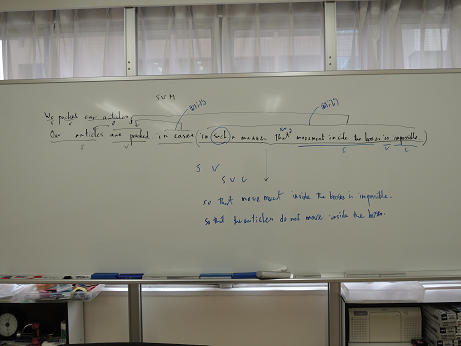 S V M
We packed our articles
Our articles are packed in cases (in such a manner that movement inside the boxes is impossible)
S V S V C
S V
S V C
so that movement inside the boxes is impossible.
so that the articles do not move inside the boxes.